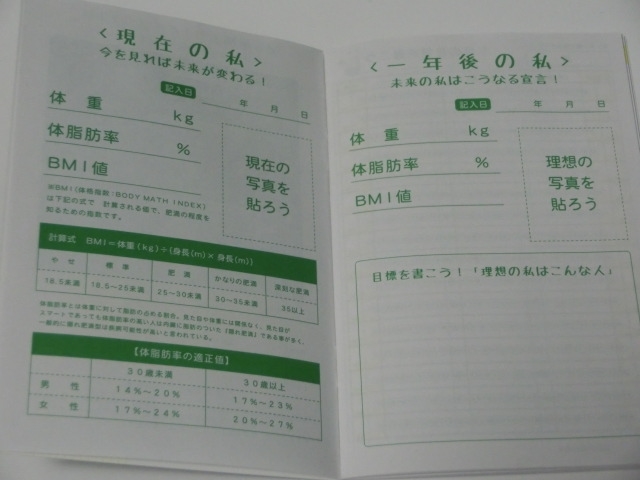 〈現在の私〉
今を見れば未来が変わる！
記入日 年 月 日
体 重 kg
体脂肪率 %
BMI値
現在の
写真を
貼ろう
※BMI(体格指数：BODY MATH INDEX)
は下記の式で 計算される値で、肥満の程度を
知るための指数です。
計算式 BMI＝体重(kg)÷{身長(m)×身長(m)}
やせ 標準 肥満 かなりの肥満 深刻な肥満
18.5未満 18.5〜25未満 25〜30未満 30〜35未満 35以上
体脂肪率とは体重に対して脂肪の占める割合。見た目や体重には関係なく、見た目が
スマートであっても体脂肪率の高い人は内臓に脂肪のついた「隠れ肥満」である事が多く、
一般的に隠れ肥満型は疾病可能性が高いと言われている。
【体脂肪率の適正値】
30歳未満 30歳以上
男 性 14%〜20% 17%〜23%
女 性 17%〜24% 20%〜27%
〈一年後の私〉
未来の私はこうなる宣言！
記入日 年 月 日
体 重 kg
体脂肪率 %
BMI値
理想の
写真を
貼ろう
目標を書こう！「理想の私はこんな人」